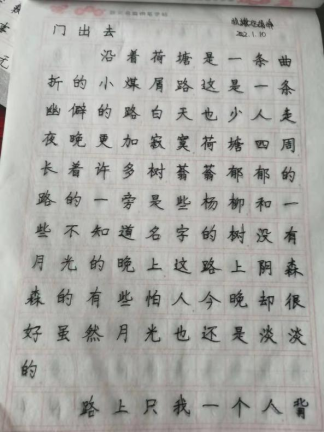 2022.1.10
门出去
沿着荷塘是一条曲
折的小煤屑路这是一条
幽僻的路白天也少人走
夜晚更加寂寞荷塘四周
长着许多树蓊蓊郁郁的
路的一旁是些杨柳和一
些不知道名字的树没有
月光的晚上这路上阴森
森的有些怕人今晚却很
好虽然月光也还是淡淡
的
路上只我一个人背